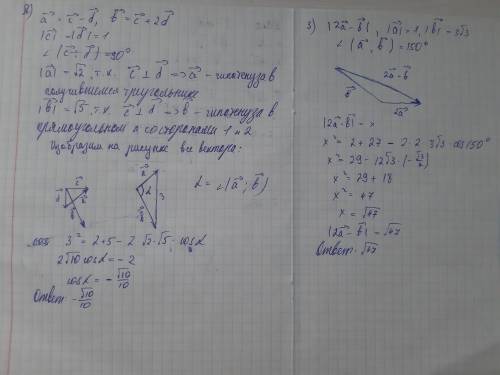 8) a⃗ = c⃗ - d⃗, b⃗ = c⃗ + 2d⃗
|c⃗| = |d⃗| = 1
∠(c⃗; d⃗) = 90°
|a⃗| = √2, т.к. c⃗ ⊥ d⃗ => a⃗ - гипотенуза в
получившимся треугольнике
|b⃗| = √5, т.к. c⃗ ⊥ d⃗ => b - гипотенуза в
прямоугольном △ со сторонами 1 и 2
Изобразим на рисунке все вектора:
c⃗
d⃗
a⃗
α
3
b⃗
α = ∠(a⃗; b⃗)
3² = 2+5 - 2·√2·√5·cosα
2√10 cosα = -2
cosα = -√10/10
Ответ: -√10/10
3) |2a⃗ - b⃗|, |a⃗| = 1, |b⃗| = 3√3
∠(a⃗, b⃗) = 150°
2a⃗ - b⃗
b⃗
2a⃗
|2a⃗ - b⃗| - x
x² = 2 + 27 - 2·2·3√3·cos150°
x² = 29 - 12√3·(-√3/2)
x² = 29 + 18
x² = 47
x = √47
|2a⃗ - b⃗| = √47
Ответ: √47